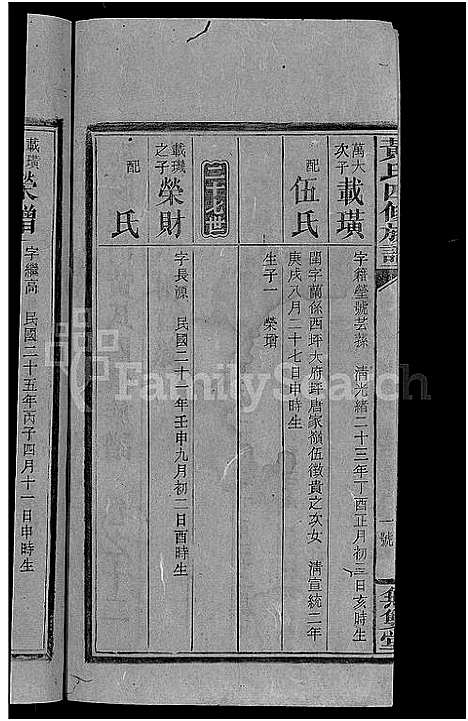 黃氏四修族譜
一號
無雙堂
萬大次子 載璜 字籍瑩號芸蓀 清光緒二十三年丁酉正月初三日亥時生
配 伍氏 閨字蘭係西坪大府玗唐家嶺伍徵貴之次女 清宣統二年
庚戌八月二十七日申時生
生子一 榮璔
載璣之子 榮財 字長源 民國二十一年壬申九月初二日酉時生
配 氏
載璜 榮 字繼高 民國二十五年丙子四月十一日申時生
FamilySearch